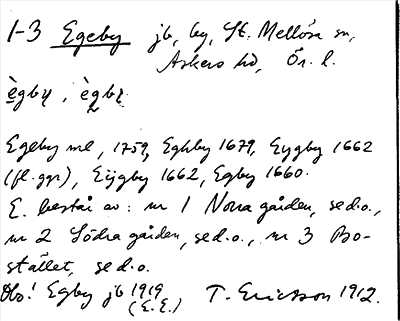 1-3 Egeby jb, by, St. Mellösa sn,
Askers hd, Ör. l.
ègby, ègby.
Egeby ml, 1759, Eghby 1679, Eygby 1662
(fl. ggr), Eijgby 1662, Egby 1660.
E. består av: nr 1 Norra gården, se d.o.,
nr 2 Södra gården, se d.o., nr 3 Bo-
stället, se d.o.
Obs! Egby jb 1919
(E.E.) T. Ericsson 1912.